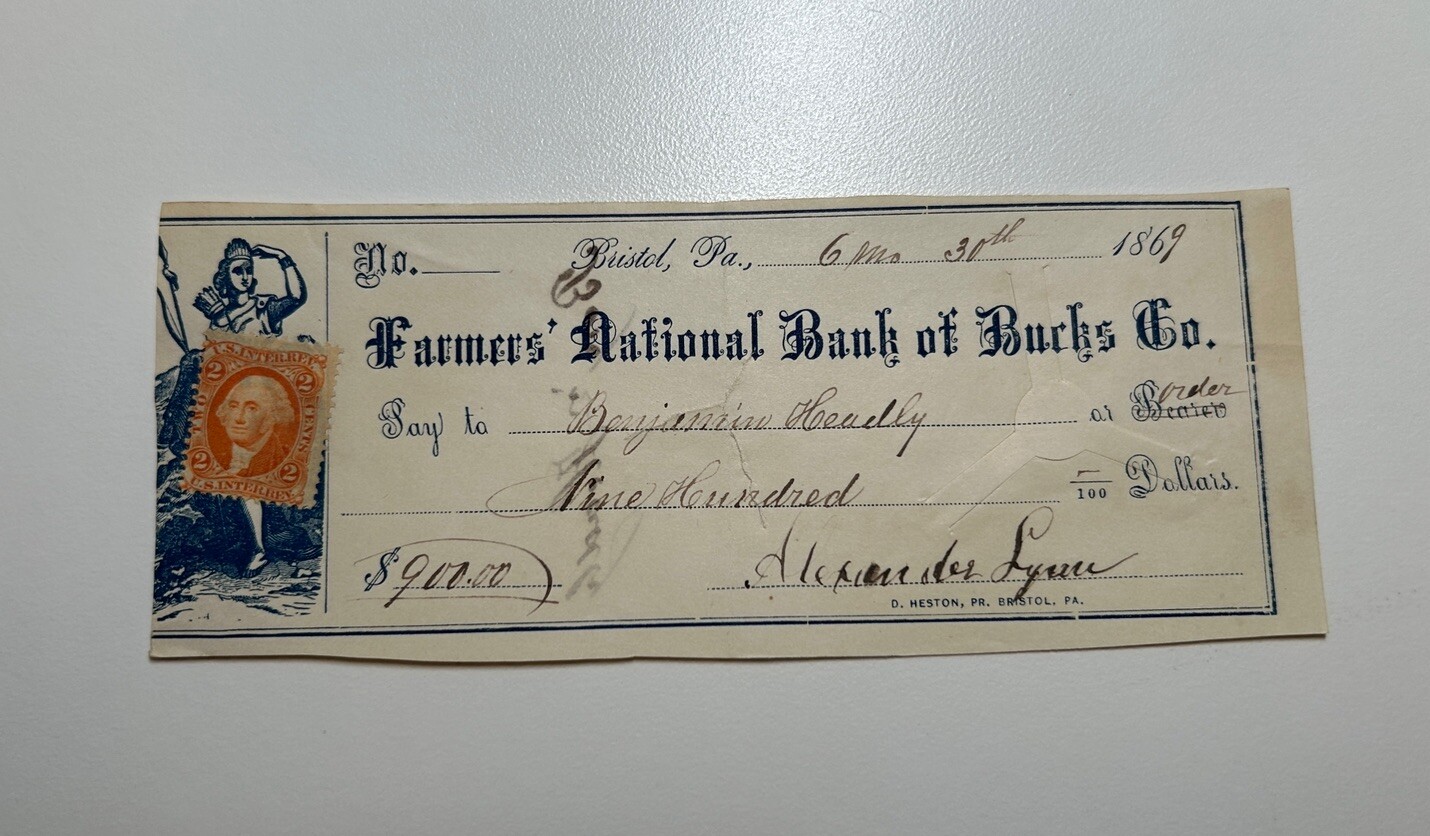 No. Bristol, Pa., 6 Mo 30th 1869
Farmers' National Bank of Bucks Co.
Pay to Benjamin Headly or Bearer order
Nine Hundred — /100 Dollars.
$900.00 Alexander Lynn
D. HESTON, PR. BRISTOL, PA.
U.S. INTER. REV.
2 2
TWO CENTS
2 2
U.S. INTER. REV.